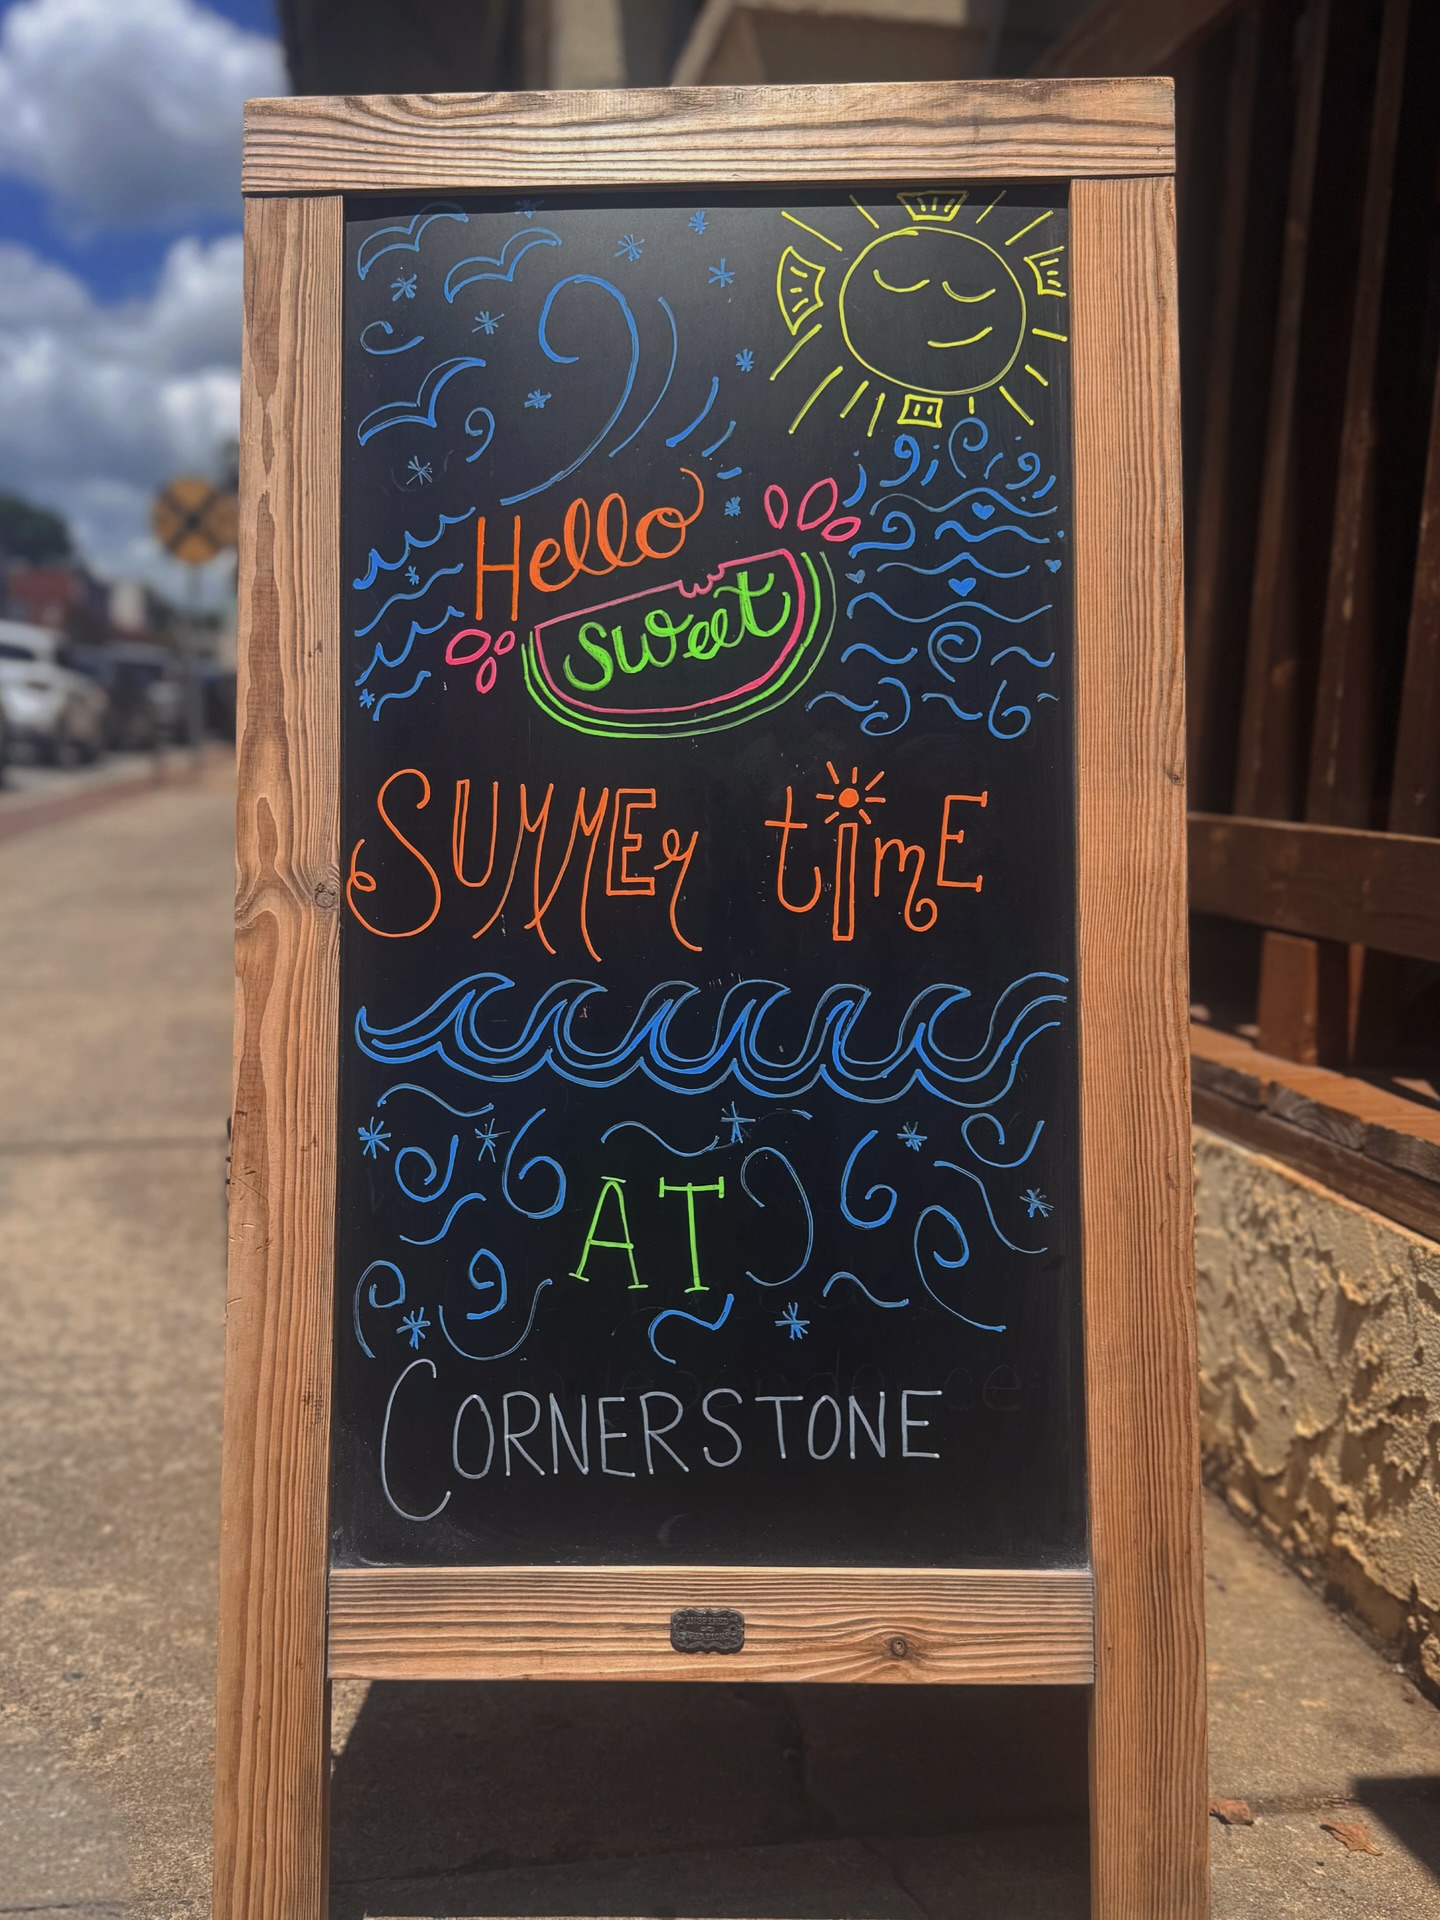 Hello
Sweet
SUMMEr timE
AT
CORNERSTONE
INSPIRED